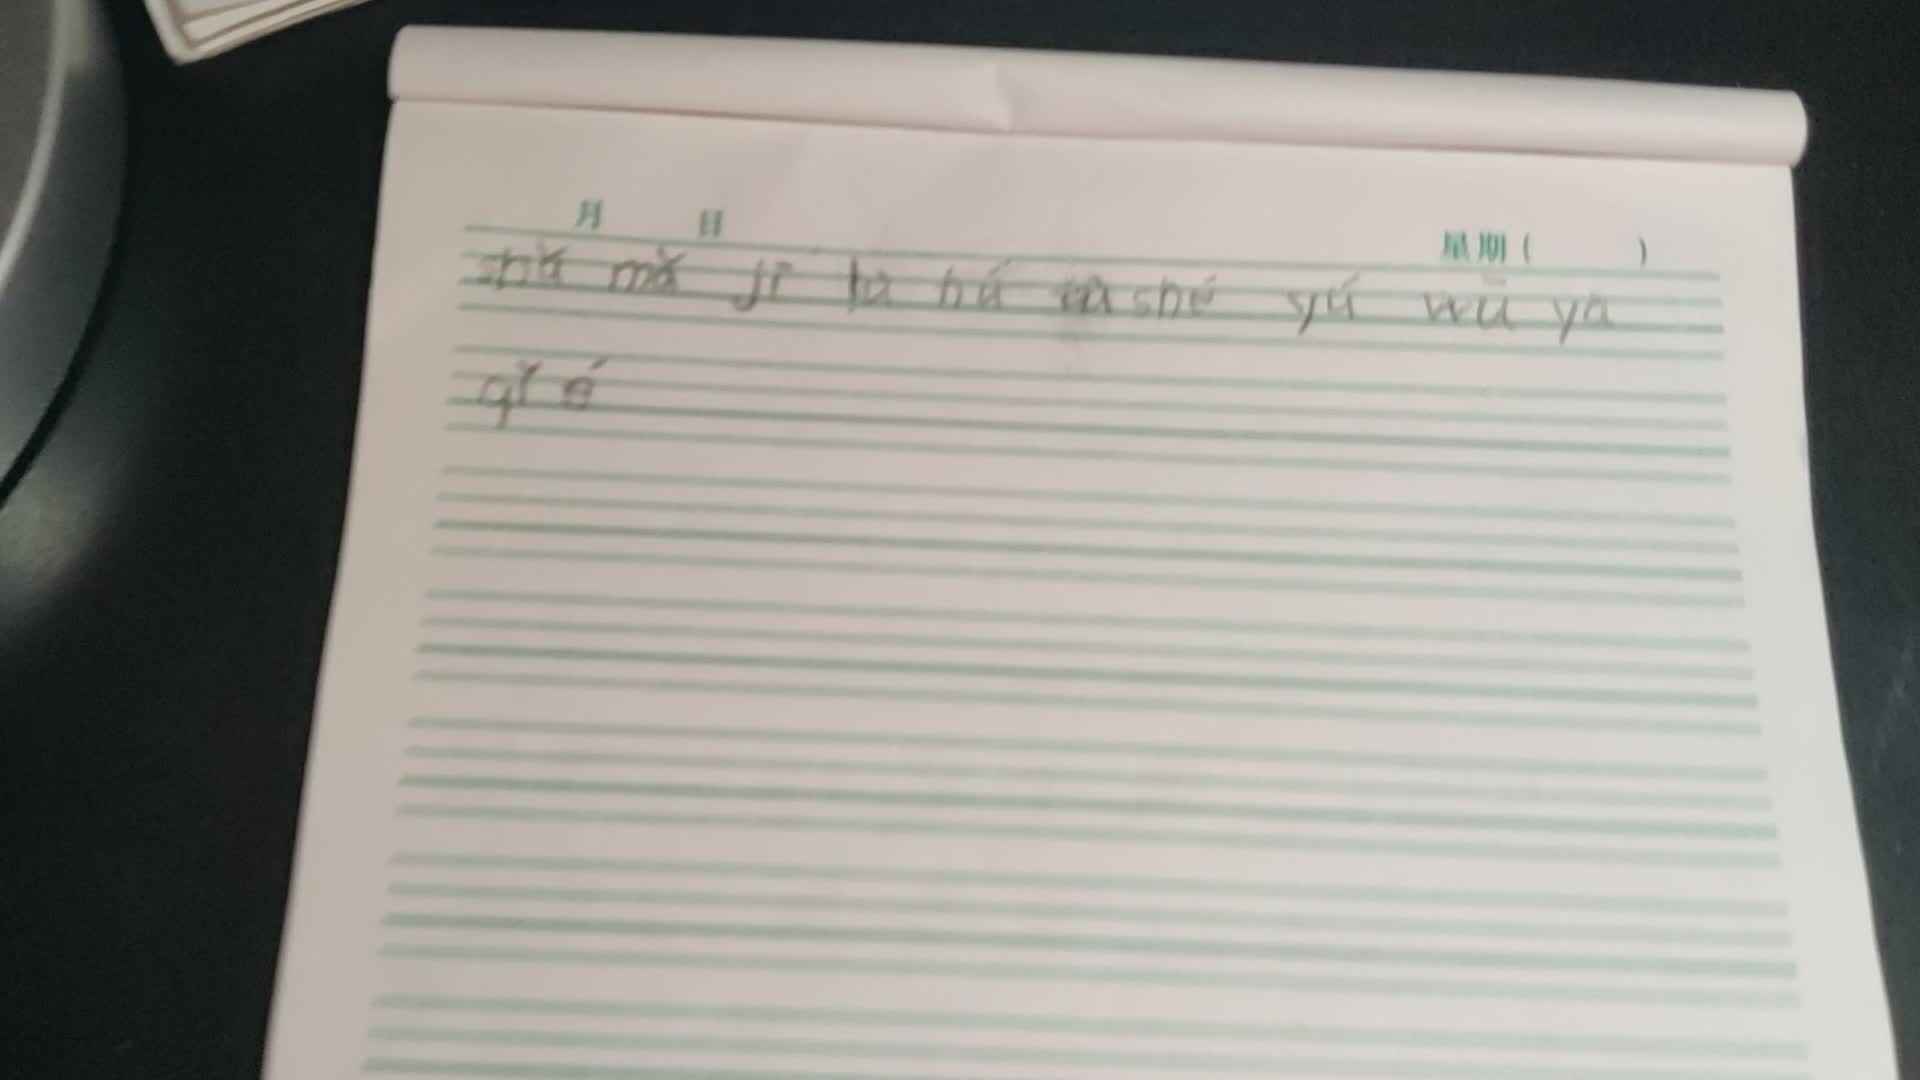 月 日 星期( )
shǔ mǎ jī tù hú tù shé yú wū yā
qǐ é